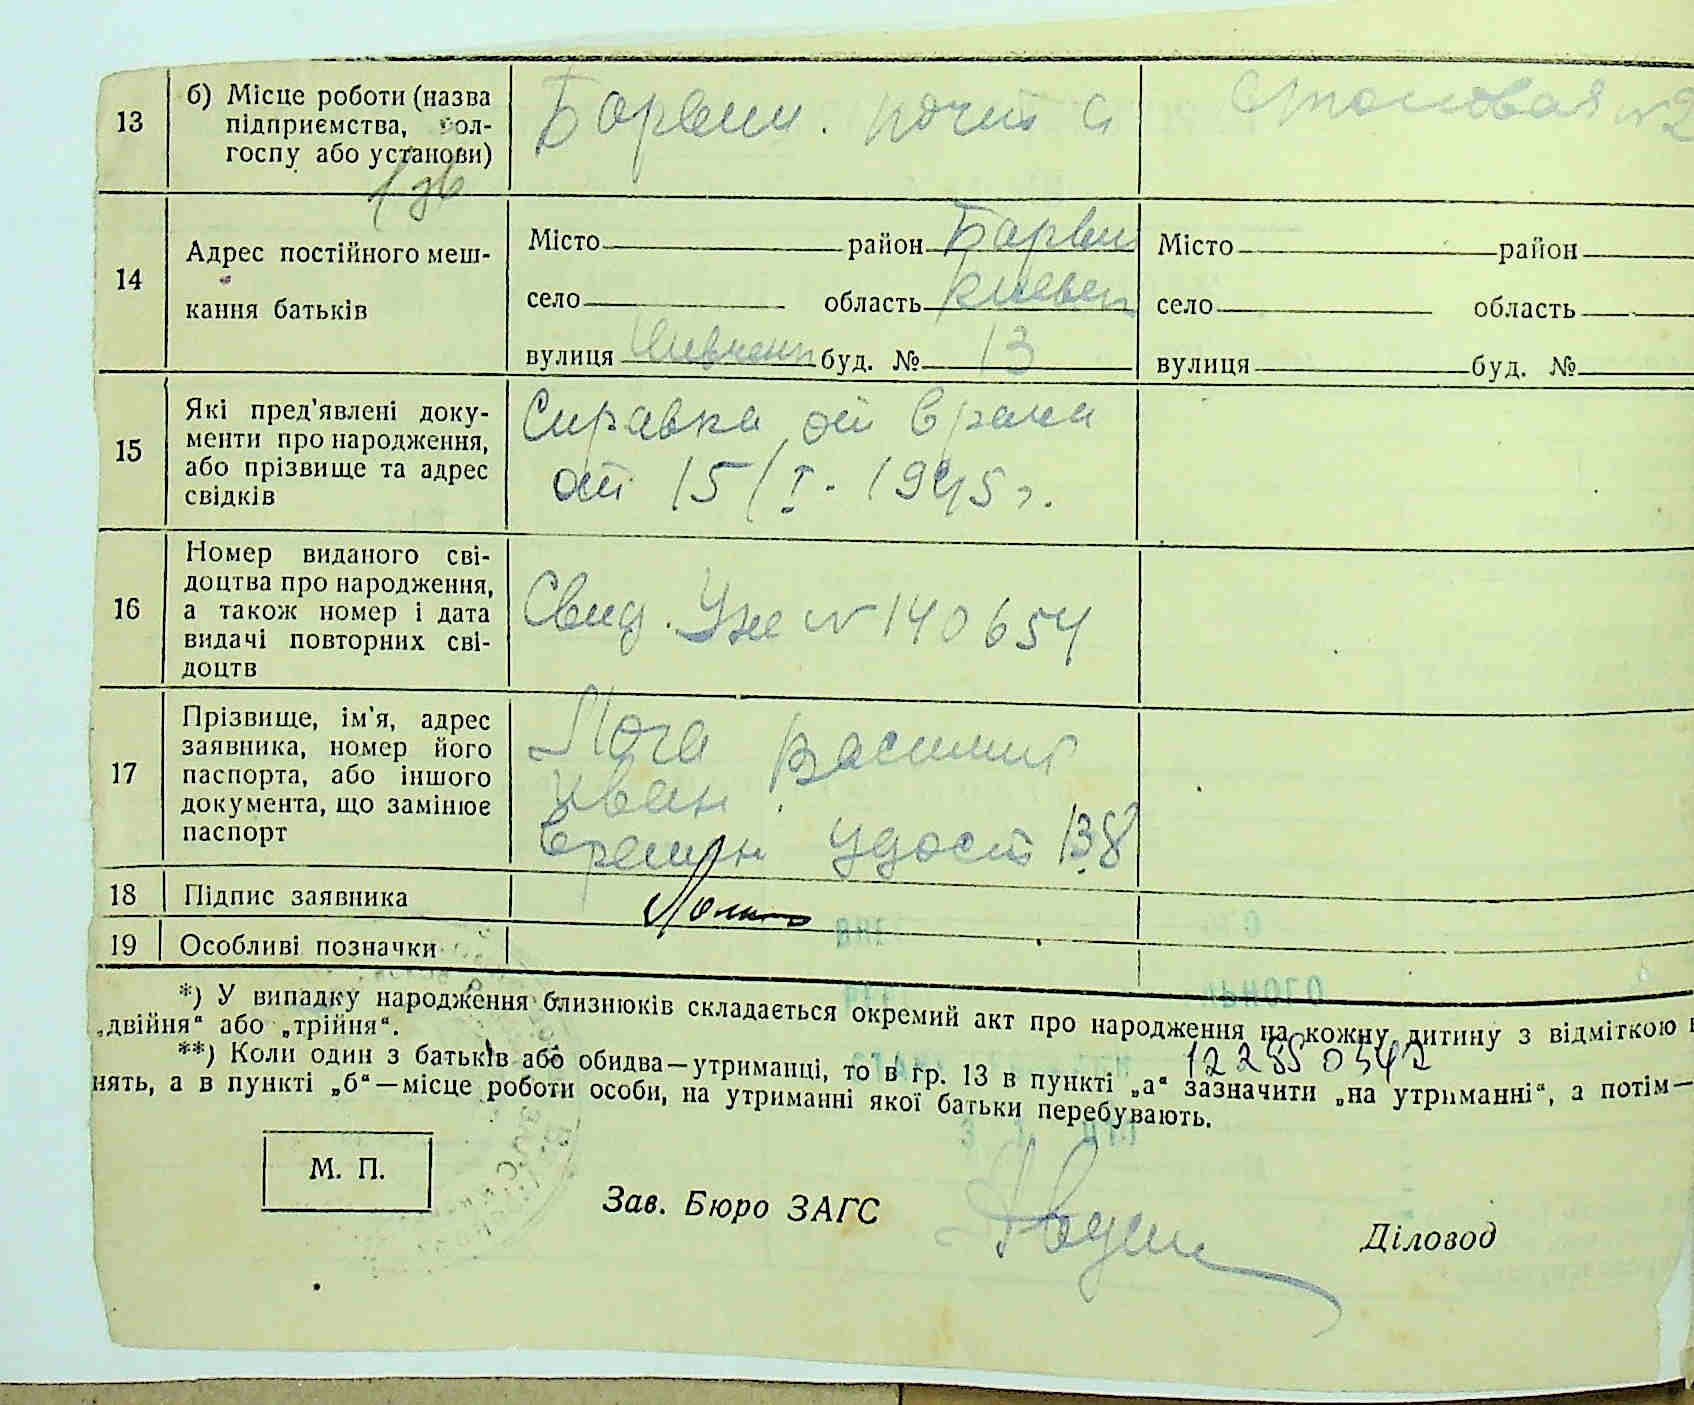 13
б) Місце роботи (назва
підприємства, кол-
госпу або установи)
Барвин. почта
Столовая №2
14
Адрес постійного меш-
кання батьків
Місто район Барвин
село область Киевск
вулиця буд. № 13
Місто район
село область
вулиця буд. №
15
Які пред'явлені доку-
менти про народження,
або прізвище та адрес
свідків
Справка от врача
от 15/I. 1945 г.
16
Номер виданого сві-
доцтва про народження,
а також номер і дата
видачі повторних сві-
доцтв
Свид. Уже № 140654
17
Прізвище, ім'я, адрес
заявника, номер його
паспорта, або іншого
документа, що замінює
паспорт
Василий
Иван
времен удост 138
18
Підпис заявника
19
Особливі позначки
*) У випадку народження близнюків складається окремий акт про народження на кожну дитину з відміткою
„двійня“ або „трійня“.
**) Коли один з батьків або обидва—утриманці, то в гр. 13 в пункті „а“ зазначити „на утриманні“, а потім—
нять, а в пункті „б“—місце роботи особи, на утриманні якої батьки перебувають.
М. П.
Зав. Бюро ЗАГС
Діловод